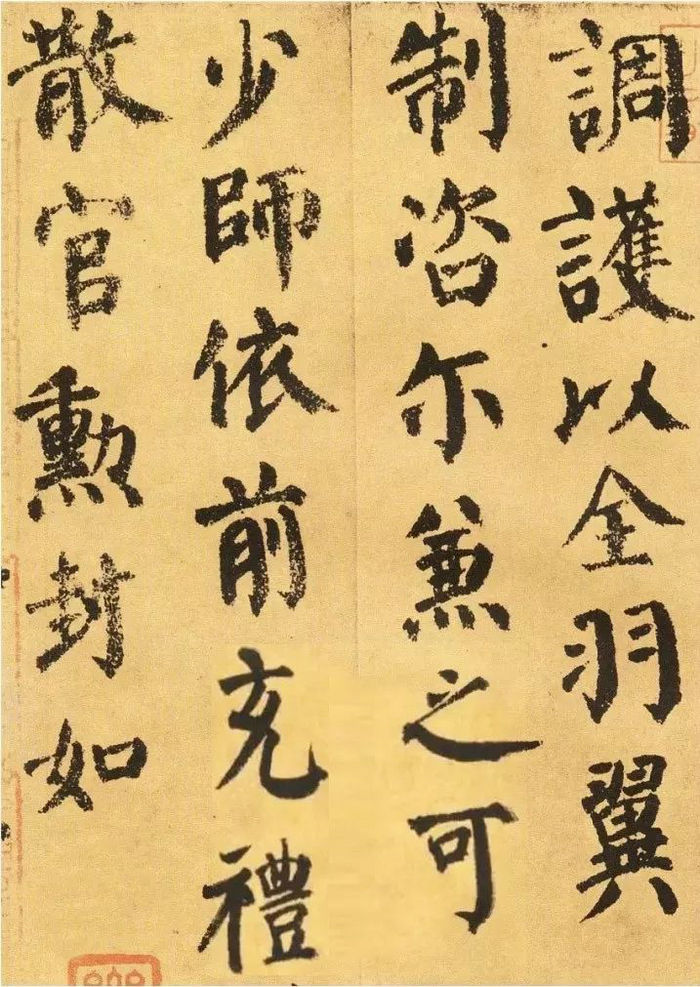 調護以全羽翼
制咨尔兼之可
少師依前充禮
散官勳封如